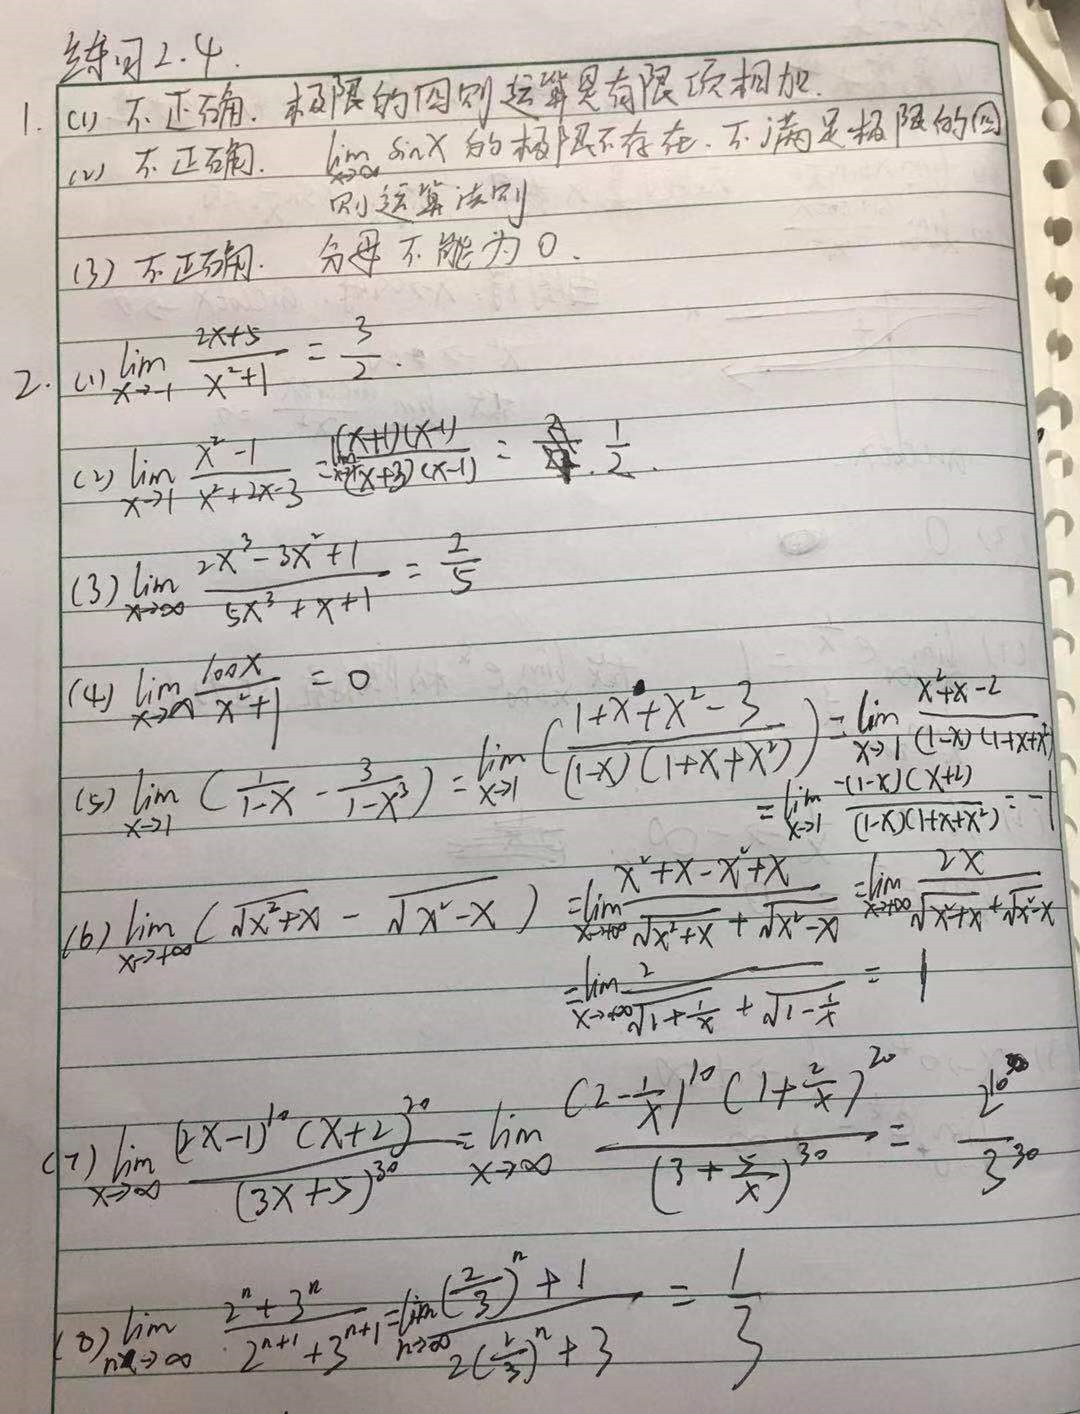 练习2.4.
1. (1) 不正确. 极限的四则运算是有限项相加.
(2) 不正确. lim x→∞ sinx 的极限不存在. 不满足极限的四
则运算法则
(3) 不正确. 分母不能为0.
2. (1) lim x→-1 (2x+5)/(x²+1) = 3/2.
(2) lim x→1 (x²-1)/(x²+2x-3) = lim x→1 (x+1)(x-1)/(x+3)(x-1) = 1/2.
(3) lim x→∞ (2x³-3x²+1)/(5x³+x+1) = 2/5
(4) lim x→∞ 100x/(x²+1) = 0
(5) lim x→1 (1/(1-x) - 3/(1-x³)) = lim x→1 ((1+x+x²-3)/((1-x)(1+x+x²))) = lim x→1 (x²+x-2)/((1-x)(1+x+x²))
= lim x→1 -(1-x)(x+2)/((1-x)(1+x+x²)) = -1
(6) lim x→+∞ (√(x²+x) - √(x²-x)) = lim x→+∞ (x²+x-x²+x)/(√(x²+x)+√(x²-x)) = lim x→+∞ 2x/(√(x²+x)+√(x²-x))
= lim x→+∞ 2/(√(1+1/x)+√(1-1/x)) = 1
(7) lim x→∞ (2x-1)¹⁰(x+2)²⁰/(3x+5)³⁰ = lim x→∞ (2-1/x)¹⁰(1+2/x)²⁰/(3+5/x)³⁰ = 2¹⁰/3³⁰
(8) lim n→∞ (2ⁿ+3ⁿ)/(2ⁿ⁺¹+3ⁿ⁺¹) = lim n→∞ ((2/3)ⁿ+1)/(2(2/3)ⁿ+3) = 1/3